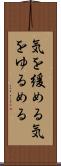 気を緩める気
をゆるめる